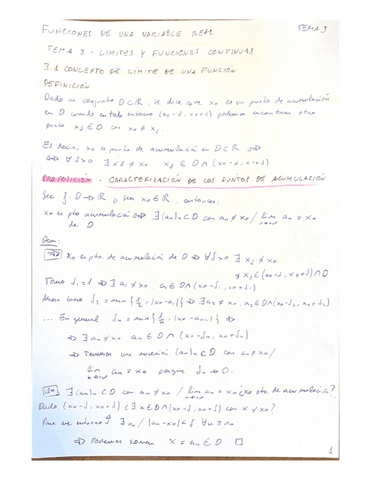 FUNCIONES DE UNA VARIABLE REAL TEMA 3
TEMA 3 - LÍMITES Y FUNCIONES CONTINUAS
3.1 CONCEPTO DE LÍMITE DE UNA FUNCIÓN
DEFINICIÓN
Dado un conjunto D⊂ℝ, se dice que x₀ es un punto de acumulación
en D cuando en todo entorno (x₀-δ, x₀+δ) podemos encontrar otro
punto xδ ∈ D con x₀ ≠ xδ.
Es decir, x₀ es punto de acumulación en D⊂ℝ ⇔
⇔ ∀δ>0 ∃ xδ ≠ x₀ xδ ∈ D∩(x₀-δ, x₀+δ)
PROPOSICIÓN - CARACTERIZACIÓN DE LOS PUNTOS DE ACUMULACIÓN
Sea f: D→ℝ y sea x₀∈ℝ, entonces:
x₀ es pto acumulación ⇔ ∃(an)n⊂D con an≠x₀ / lim an = x₀
de D
Dem:
⇒ x₀ es pto de acumulación de D ⇒ ∀δ>0 ∃ xδ ≠ x₀
xδ∈(x₀-δ, x₀+δ)∩D
Tomo δ₁=1 ⇒ ∃ a₁≠x₀ a₁∈D∩(x₀-δ₁, x₀+δ₁)
Ahora tomo δ₂ = min{1/2, |x₀-a₁|} ⇒ ∃ a₂≠x₀ a₂∈D∩(x₀-δ₂, x₀+δ₂)
... En general δn = min{1/n, |x₀-an-1|} ⇒
⇒ ∃ an≠x₀ an∈D∩(x₀-δn, x₀+δn)
⇒ Tenemos una sucesión (an)n⊂D con an≠x₀/
lim an = x₀ porque δn→0.
⇐ ∃(an)n⊂D con an≠x₀ / lim an = x₀ ¿x₀ pto de acumulación?
Dado (x₀-δ, x₀+δ) ¿∃x∈D∩(x₀-δ, x₀+δ) con x≠x₀?
Para ese entorno ∃ n₀ / |an-x₀|<δ ∀n≥n₀
⇒ Podemos tomar x = an ∈ D □
1